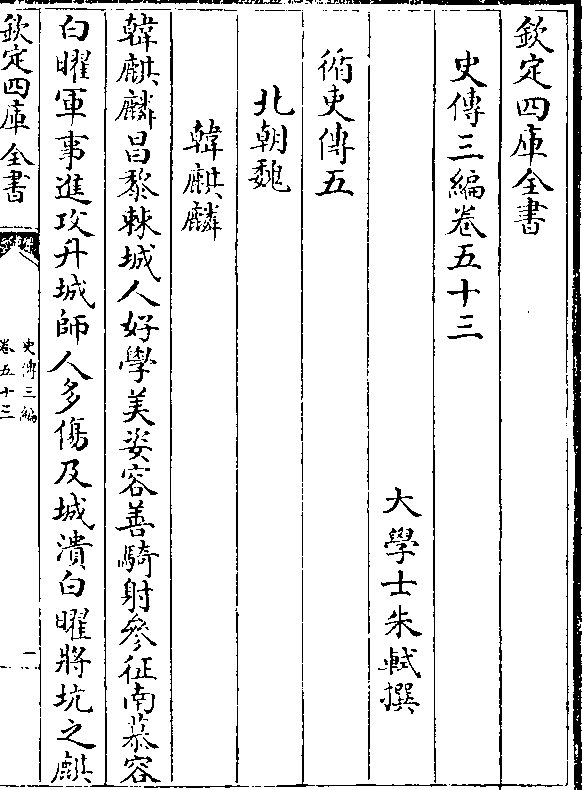 欽定四庫全書
史傳三編卷五十三
大學士朱軾撰
循吏傳五
北朝魏
韓麒麟
韓麒麟昌黎棘城人好學美姿容善騎射參征南慕容
白曜軍事進攻升城師人多傷及城潰白曜將坑之麒
欽定四庫全書
史傳三編
卷五十三
一